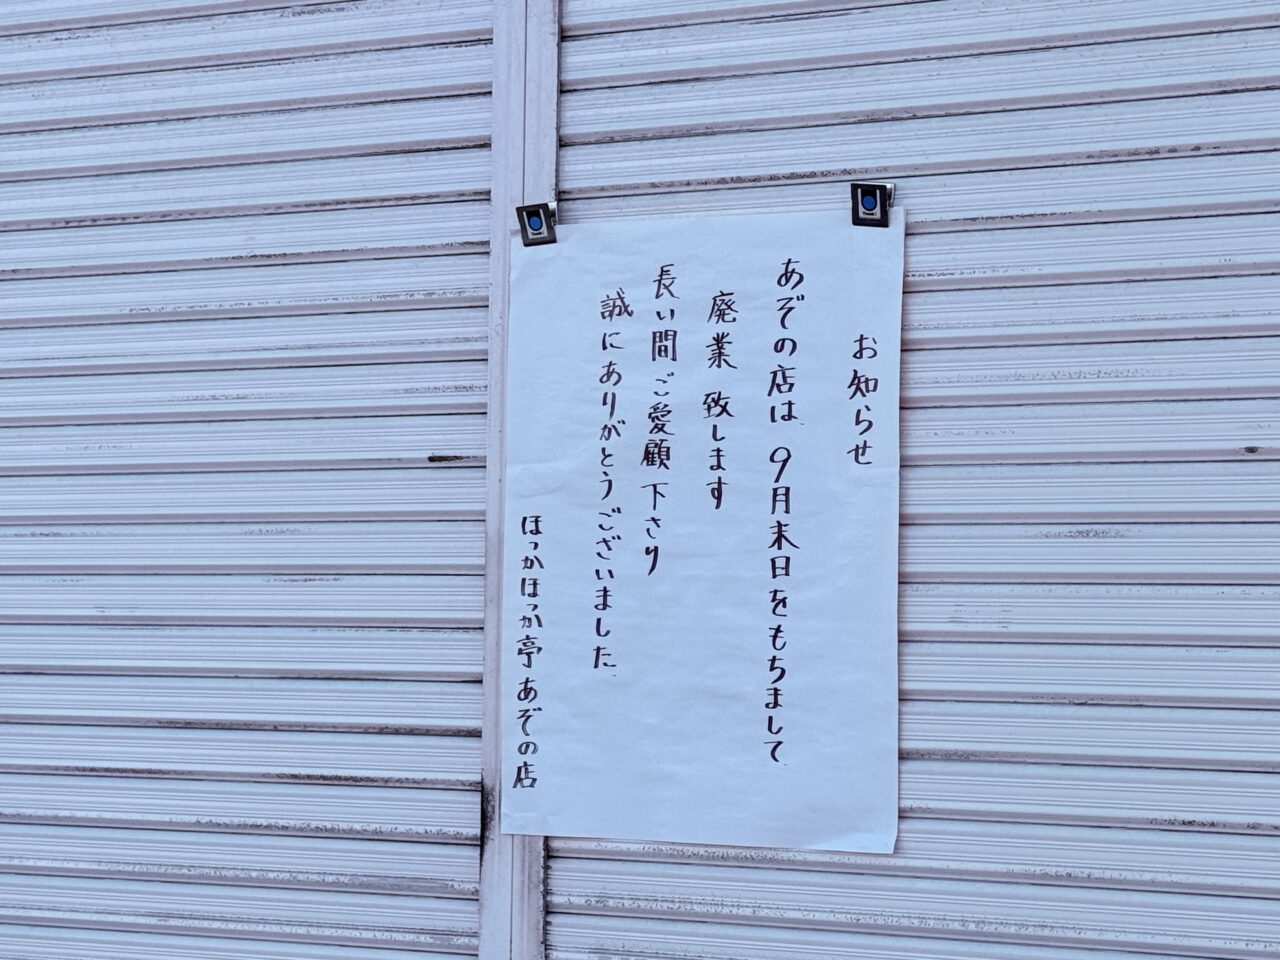 お知らせ
あぞの店は、9月末日をもちまして
廃業致します
長い間ご愛顧下さり
誠にありがとうございました。
ほっかほっか亭あぞの店